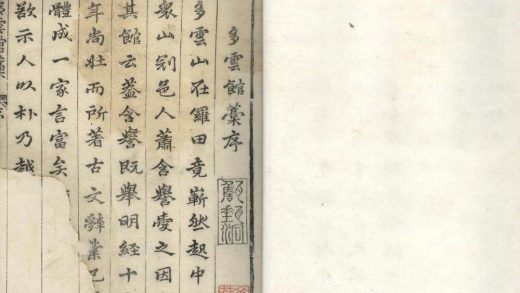 多雲館藁序
多雲山在羅田竟嶄然起中
衆山別邑人蕭含譽愛之因
其館云葢含譽既舉明經十
年尚壯而所著古文辭業已
體成一家言富矣
欲示人以朴乃越